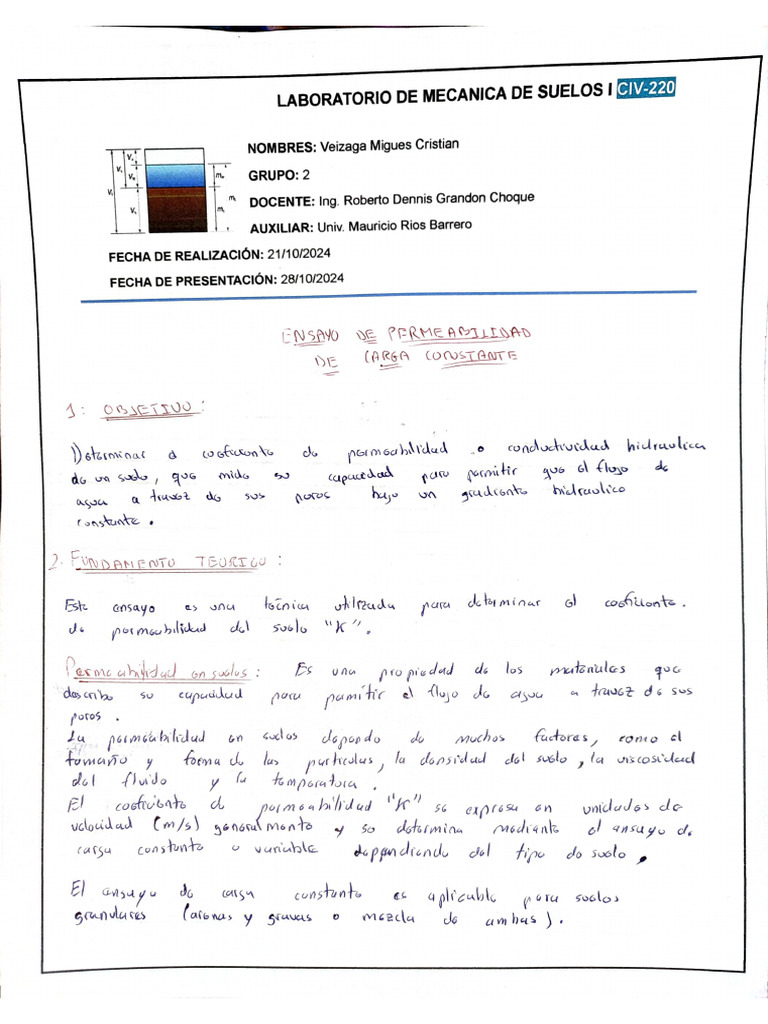 LABORATORIO DE MECANICA DE SUELOS I CIV-220
NOMBRES: Veizaga Migues Cristian
GRUPO: 2
DOCENTE: Ing. Roberto Dennis Grandon Choque
AUXILIAR: Univ. Mauricio Rios Barrero
FECHA DE REALIZACIÓN: 21/10/2024
FECHA DE PRESENTACIÓN: 28/10/2024
ENSAYO DE PERMEABILIDAD
DE CARGA CONSTANTE
1: OBJETIVO:
Determinar el coeficiente de permeabilidad o conductividad hidraulica
de un suelo, que mide su capacidad para permitir que el flujo de
agua a travez de sus poros bajo un gradiente hidraulico
constante.
2. FUNDAMENTO TEORICO:
Este ensayo es una técnica utilizada para determinar el coeficiente.
de permeabilidad del suelo "K".
Permeabilidad en suelos: Es una propiedad de los materiales que
describe su capacidad para permitir el flujo de agua a travez de sus
poros.
La permeabilidad en suelos depende de muchos factores, como el
tamaño y forma de las particulas, la densidad del suelo, la viscosidad
del fluido y la temperatura.
El coeficiente de permeabilidad "K" se expresa en unidades de
velocidad (m/s) generalmente y se determina mediante el ensayo de
carga constante o variable dependiendo del tipo de suelo.
El ensayo de carga constante es aplicable para suelos
granulares (arenas y gravas o mezcla de ambas).